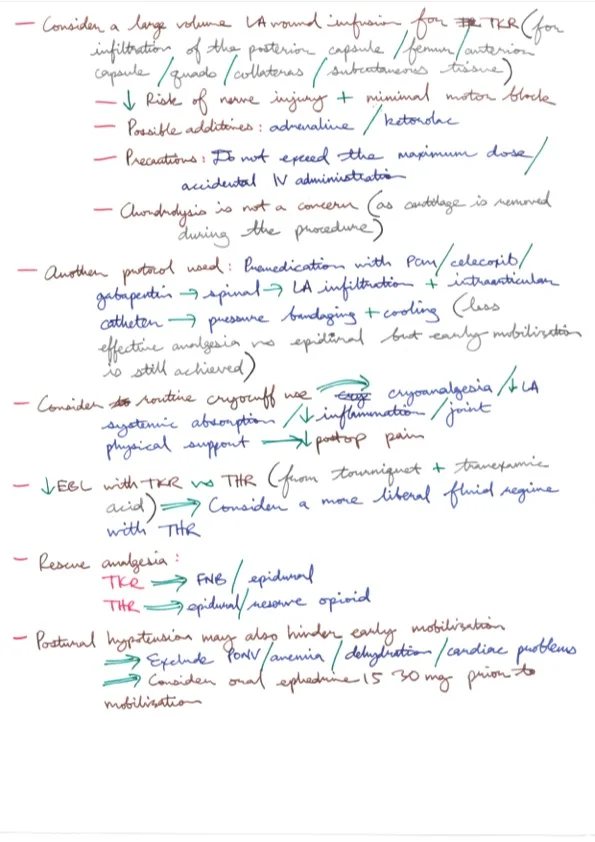 — Consider a large volume LA wound infusion for TKR (for
infiltration of the posterior capsule / femur / anterior
capsule / quads / collaterals / subcutaneous tissue)
— ↓ Risk of nerve injury + minimal motor block
— Possible additives: adrenaline / ketorolac
— Precautions: Do not exceed the maximum dose /
accidental IV administration
— Chondrolysis is not a concern (as cartilage is removed
during the procedure)
— Another protocol used: Premedication with PCM / celecoxib /
gabapentin → spinal → LA infiltration + intraarticular
catheter → pressure bandaging + cooling (less
effective analgesia vs epidural but early mobilization
is still achieved)
— Consider routine cryocuff use ⇒ cryoanalgesia / ↓ LA
systemic absorption / ↓ inflammation / joint
physical support ⇒ ↓ postop pain
— ↓ EBL with TKR vs THR (from tourniquet + tranexamic
acid) ⇒ Consider a more liberal fluid regime
with THR
— Rescue analgesia:
TKR ⇒ FNB / epidural
THR ⇒ epidural / reserve opioid
— Postural hypotension may also hinder early mobilization
⇒ Exclude PONV / anemia / dehydration / cardiac problems
⇒ Consider oral ephedrine 15 30 mg prior to
mobilization